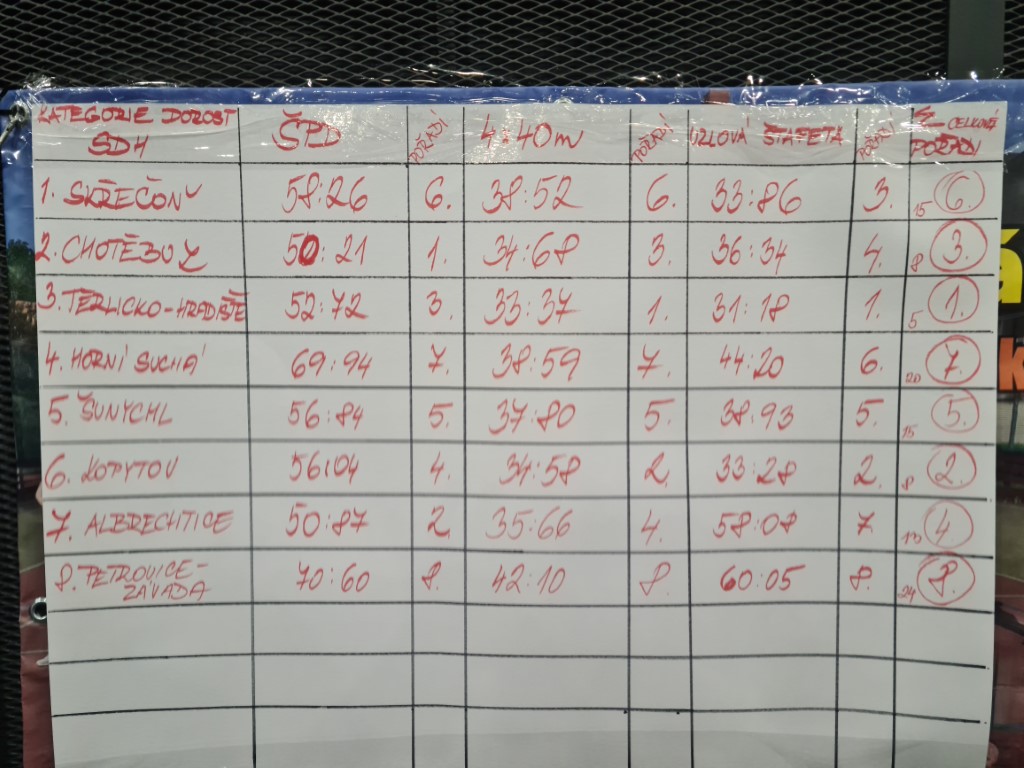 KATEGORIE DOROST SDH ŠPD POŘADÍ 4x40m POŘADÍ UZLOVÁ ŠTAFETA POŘADÍ Σ CELKOVÉ POŘADÍ
1. SKŘEČOŇ 58:26 6. 38:52 6. 33:86 3. 15 6.
2. CHOTĚBUZ 50:21 1. 34:68 3. 36:34 4. 8 3.
3. TĚRLICKO-HRADIŠTĚ 52:72 3. 33:37 1. 31:18 1. 5 1.
4. HORNÍ SUCHÁ 69:94 7. 38:59 7. 44:20 6. 20 7.
5. ŠUNYCHL 56:84 5. 37:80 5. 38:93 5. 15 5.
6. KOPYTOV 56:04 4. 34:58 2. 33:28 2. 8 2.
7. ALBRECHTICE 50:87 2. 35:66 4. 58:08 7 13 4
8. PETROVICE-ZÁVADA 70:60 8. 42:10 8. 60:05 8. 24 8.
á
k